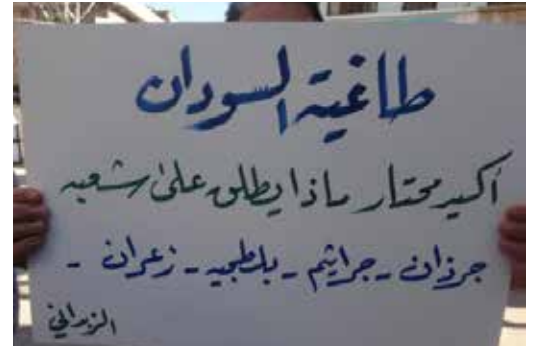 طاغية السودان
أكيد محتار ماذا يطلق على شعبه
جرذان - جراثيم - بلطجيه - زعران -
الزبداني